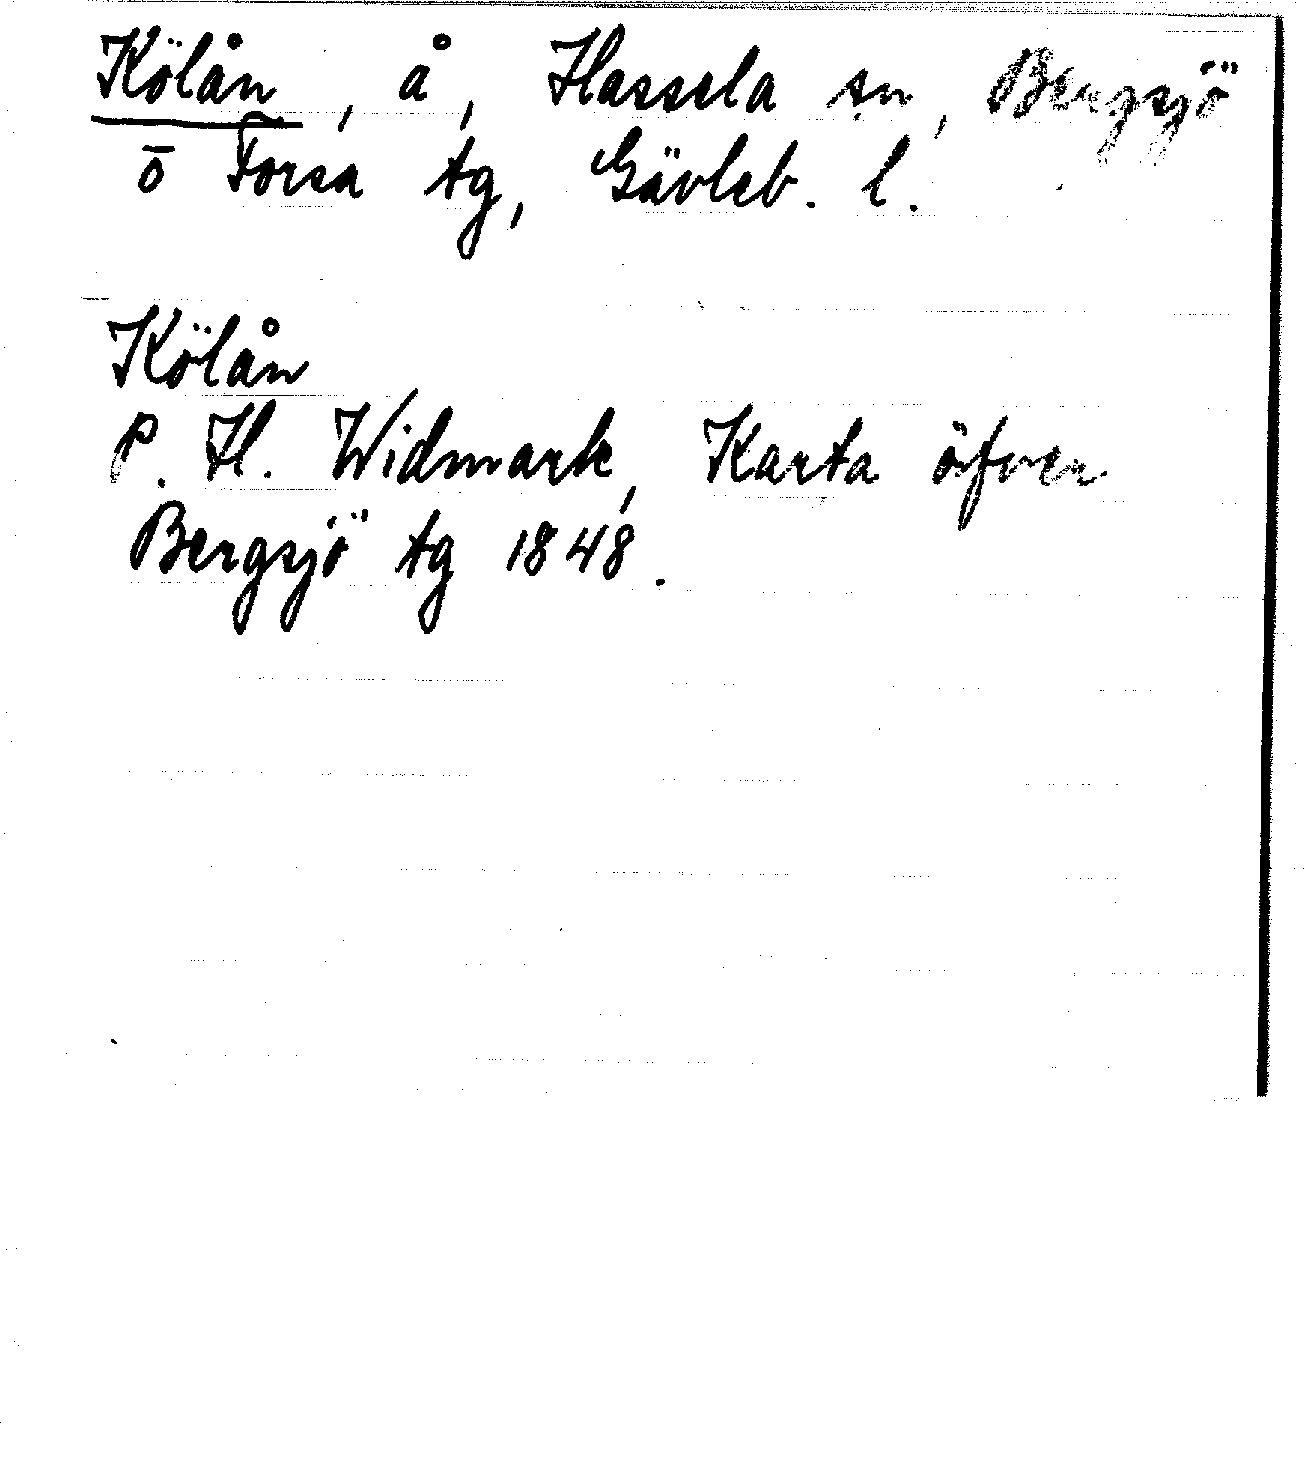 Kölån, å, Hassela sn, Bergsjö
ō Forsa tg, Gävleb. l.
Kölån
P. H. Widmark, Karta öfver
Bergsjö tg 1848.